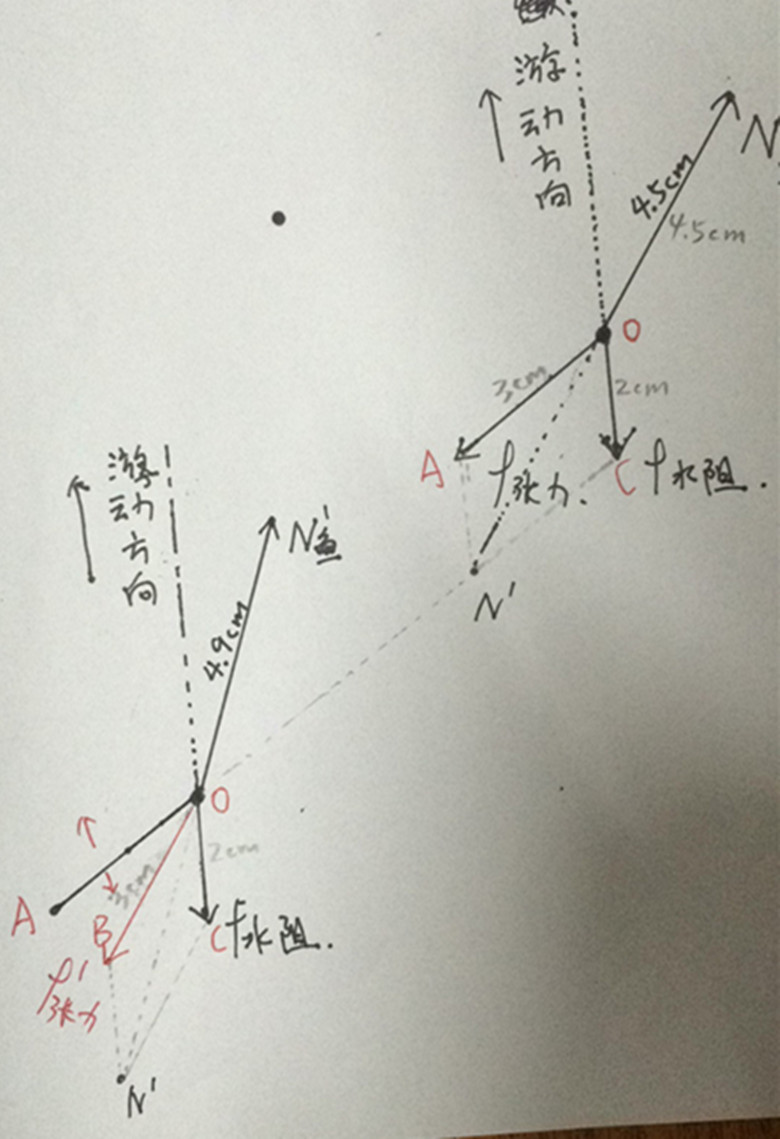 游动方向
N
4.5cm
4.5cm
O
3cm
2cm
A
f张力.
C f水阻.
N'
游动方向
N'鱼
4.9cm
O
2cm
3cm
A
B
C f水阻.
f'张力
N'